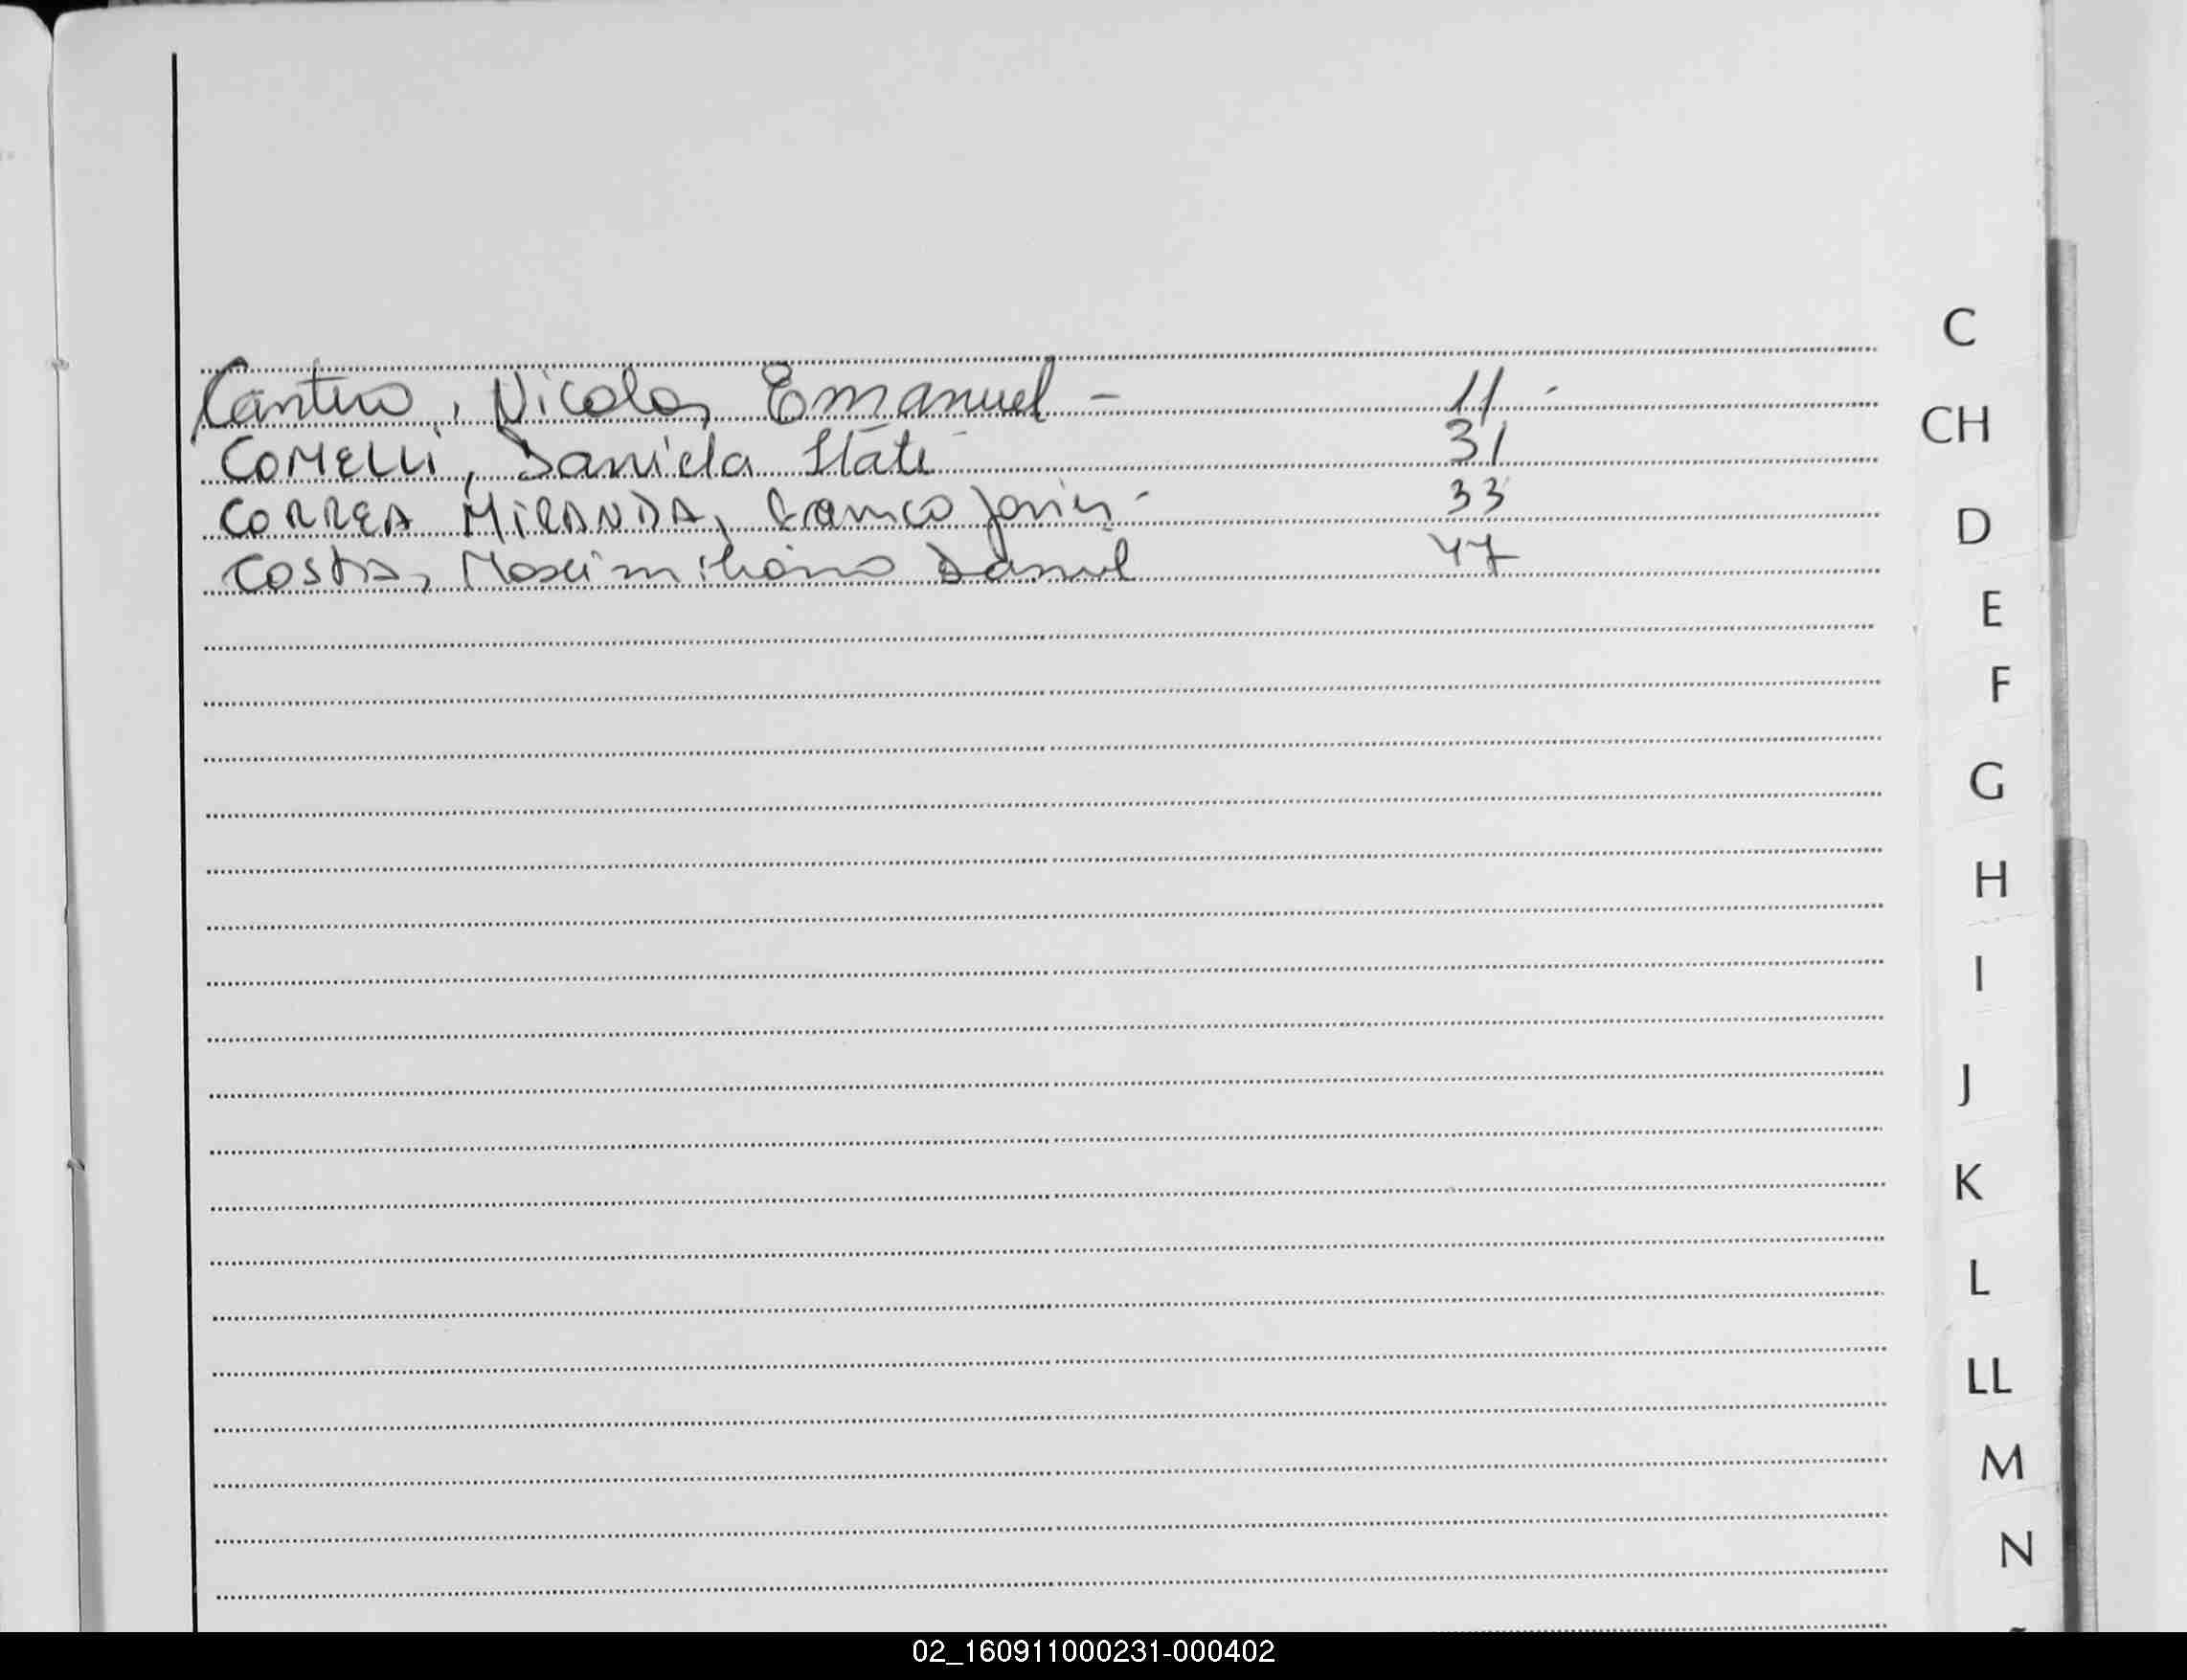 C
Cantero, Nicolas Emanuel - 11 -
CH
COMELLI, Daniela Itatí - 31
CORREA MIRANDA, Franco Javier - 33
D
COSTA, Maximiliano Daniel 47
E
F
G
H
I
J
K
L
LL
M
N
02_160911000231-000402